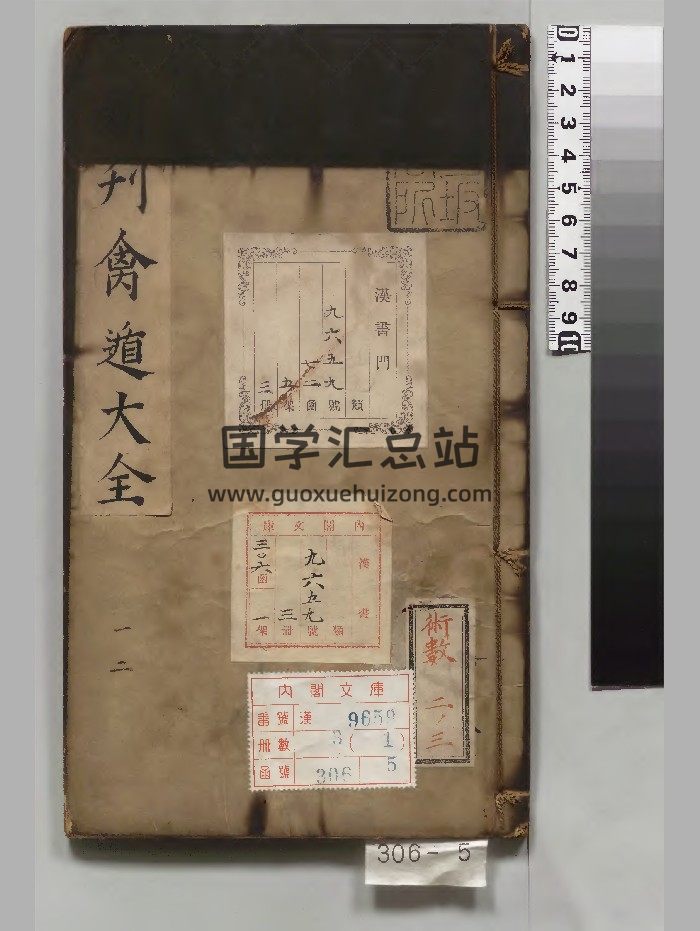 刊禽遁大全
一二
漢書門
九六五九
五
三
類號函架冊
国学汇总站
www.guoxuehuizong.com
內閣文庫
漢書
九六五九
三
三〇六函
一
類號冊架
術數
二ノ三
內閣文庫
番號 漢 9659
冊數 3 ( 1 )
函號 306 5
306- 5
0 1 2 3 4 5 6 7 8 9 10